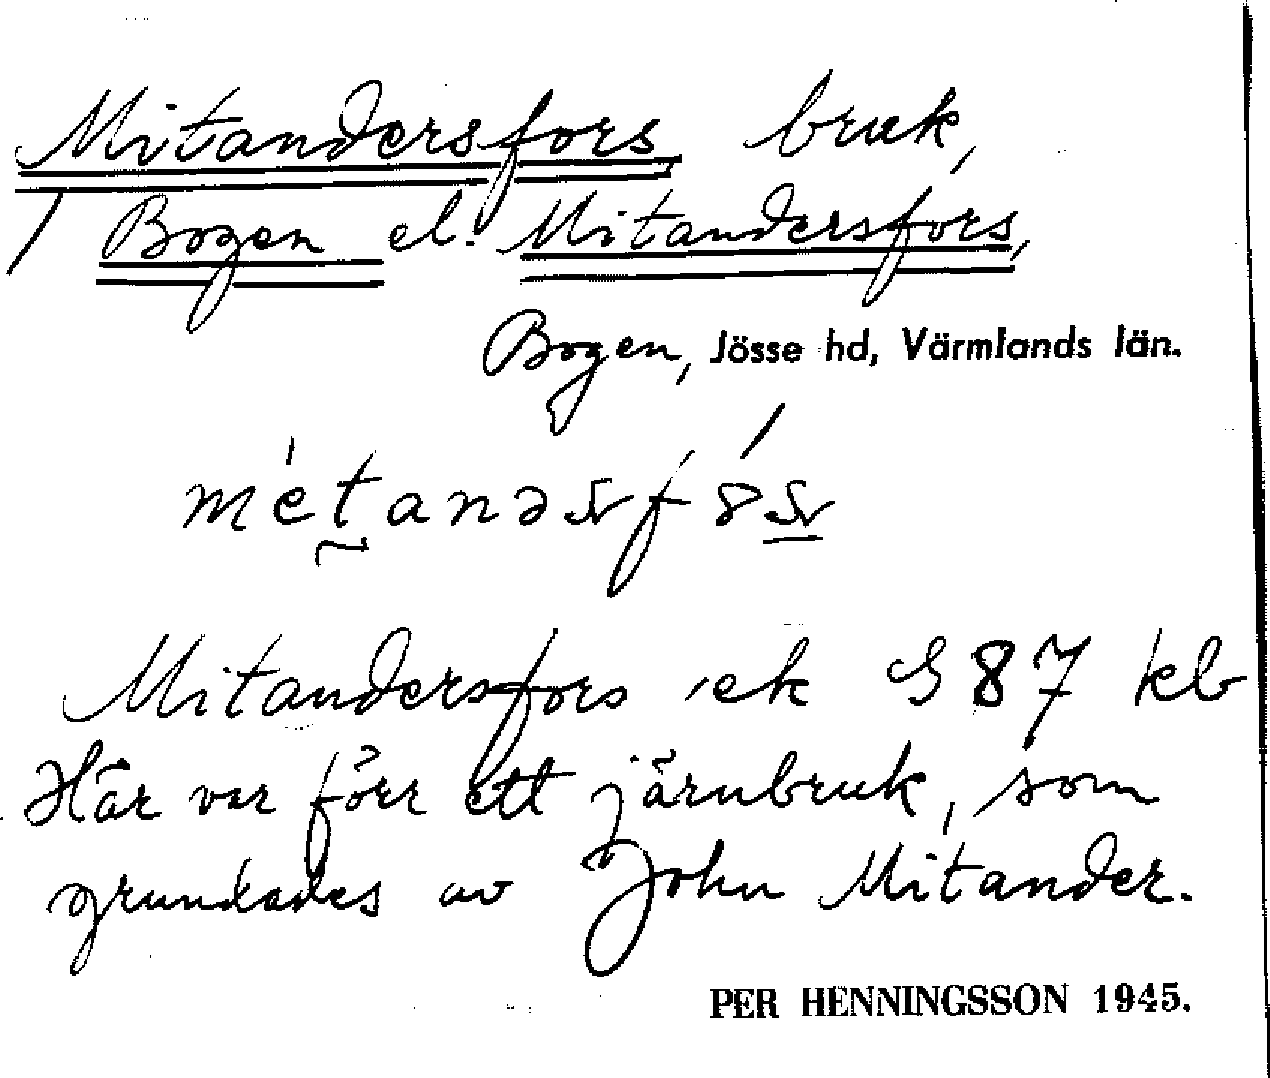 Mitandersfors, bruk,
/ Bogen el. Mitandersfors,
Bogen, Jösse hd, Värmlands län.
Mitandersfors ek S 87 kb
Här var förr ett järnbruk, som
grundades av John Mitander.
PER HENNINGSSON 1945.